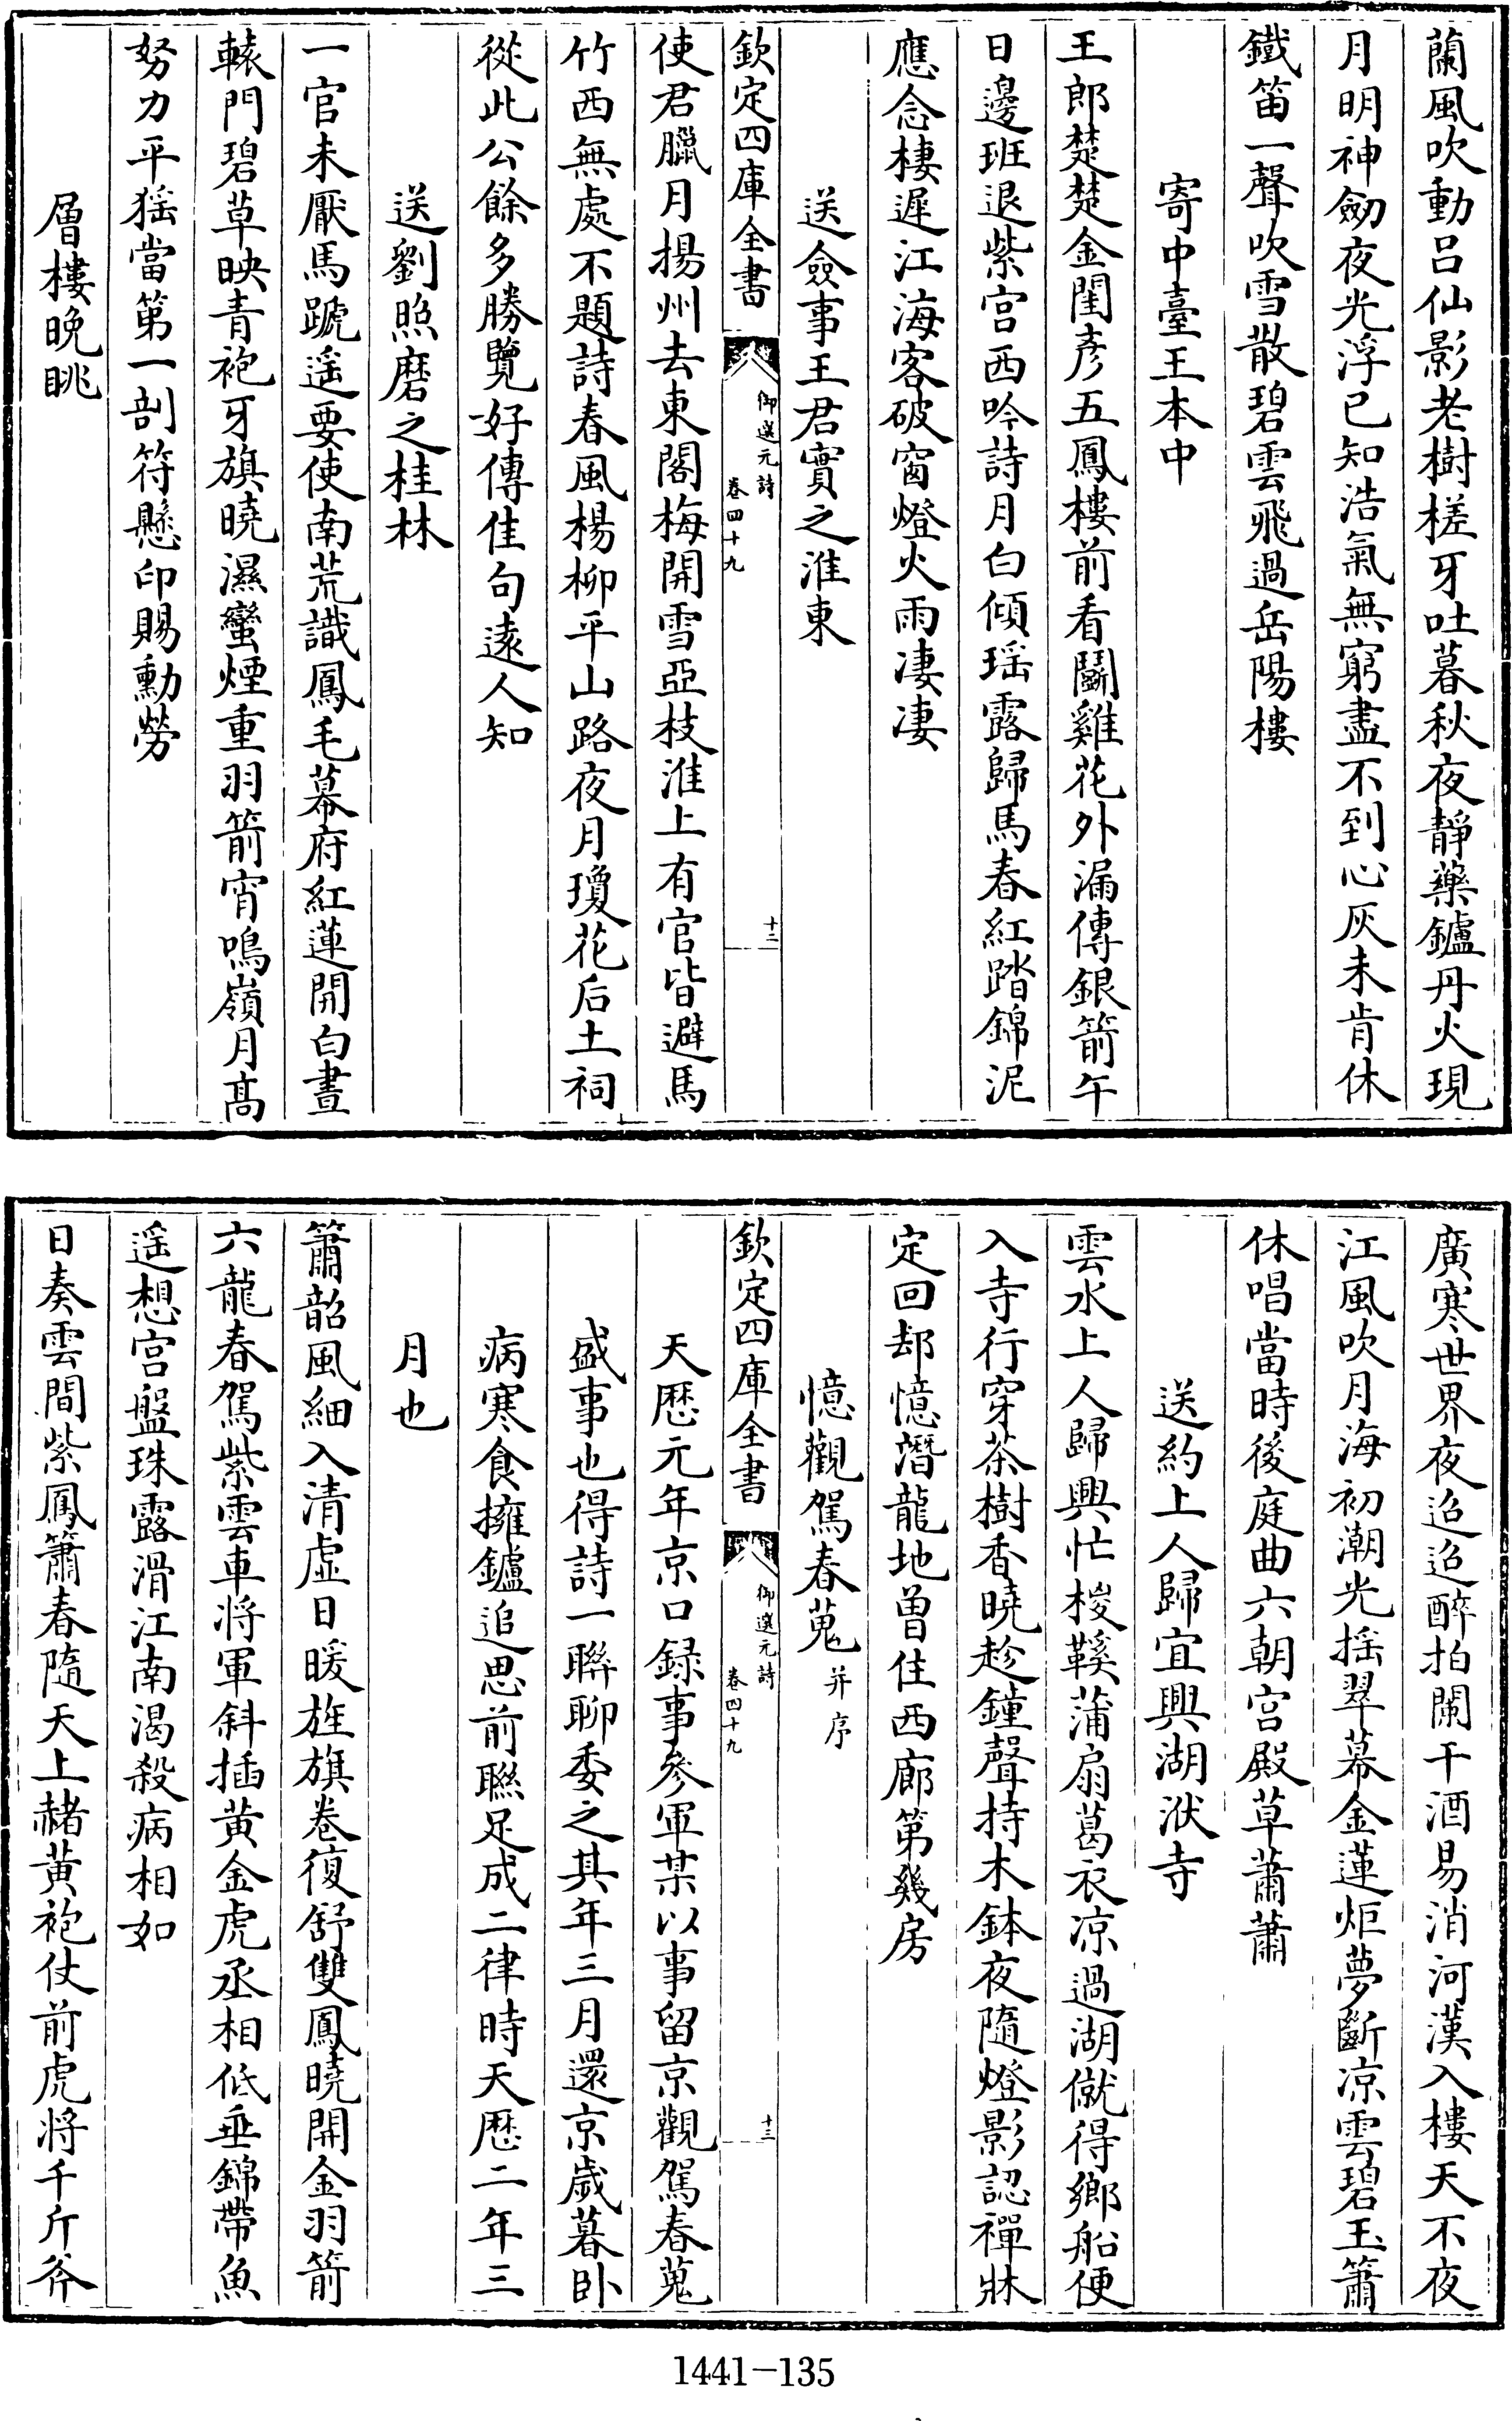 蘭風吹動呂仙影老樹槎牙吐暮秋夜靜藥鑪丹火現
月明神劒夜光浮已知浩氣無窮盡不到心灰未肯休
鐵笛一聲吹雪散碧雲飛過岳陽樓
寄中臺王本中
王郎楚楚金閨彥五鳳樓前看鬭雞花外漏傳銀箭午
日邊班退紫宫西吟詩月白傾瑶露歸馬春紅踏錦泥
應念棲遲江海客破窗燈火雨凄凄
送僉事王君實之淮東
欽定四庫全書
御選元詩
卷四十九
十二
使君臘月揚州去東閣梅開雪亞枝淮上有官皆避馬
竹西無處不題詩春風楊柳平山路夜月瓊花后土祠
從此公餘多勝覽好傳佳句遠人知
送劉照磨之桂林
一官未厭馬蹏遥要使南荒識鳳毛幕府紅蓮開白晝
轅門碧草映青袍牙旗曉濕蠻煙重羽箭宵鳴嶺月髙
努力平猺當第一剖符懸印賜勳勞
層樓晚眺
廣寒世界夜迢迢醉拍闌干酒易消河漢入樓天不夜
江風吹月海初潮光揺翠幕金蓮炬夢斷凉雲碧玉簫
休唱當時後庭曲六朝宫殿草蕭蕭
送約上人歸宜興湖洑寺
雲水上人歸興忙椶鞵蒲扇葛衣凉過湖僦得鄉船便
入寺行穿茶樹香曉趁鐘聲持木鉢夜隨燈影認禪牀
定回却憶潛龍地曽住西廊第幾房
憶觀駕春蒐并序
欽定四庫全書
御選元詩
卷四十九
十三
天厯元年京口録事參軍某以事留京觀駕春蒐
盛事也得詩一聯聊委之其年三月還京歲暮卧
病寒食擁鑪追思前聯足成二律時天厯二年三
月也
簫韶風細入清虛日暖旌旗卷復舒雙鳳曉開金羽箭
六龍春駕紫雲車将軍斜插黄金虎丞相低垂錦帶魚
遥想宫盤珠露滑江南渴殺病相如
日奏雲間紫鳳簫春隨天上赭黄袍仗前虎将千斤斧
1441-135